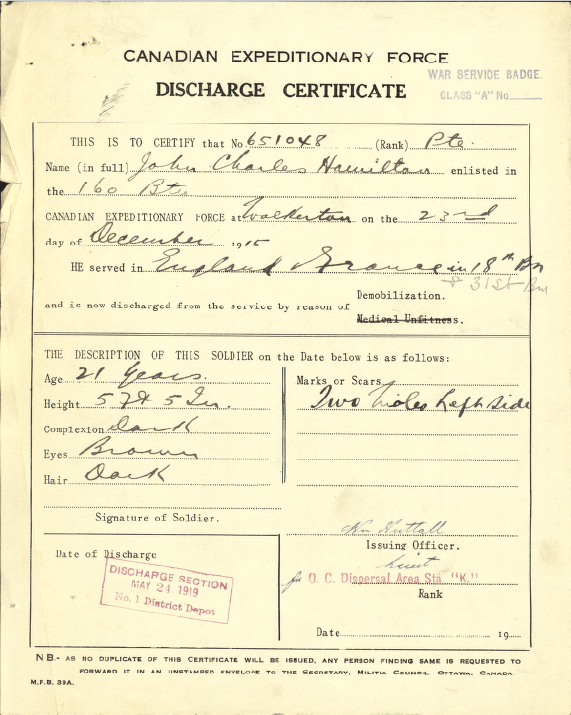 CANADIAN EXPEDITIONARY FORCE
WAR SERVICE BADGE.
DISCHARGE CERTIFICATE
CLASS "A" No
THIS IS TO CERTIFY that No 651048 (Rank) Pte.
Name (in full) John Charles Hamilton enlisted in
the 160 Btn
CANADIAN EXPEDITIONARY FORCE at Walkerton on the 23rd
day of December 1915
HE served in England France in 18th Bn
& 31st Bn
and is now discharged from the service by reason of Demobilization.
Medical Unfitness.
THE DESCRIPTION OF THIS SOLDIER on the Date below is as follows:
Age 21 Years.
Marks or Scars
Height 5 Ft 5 In.
Two moles Left Side
Complexion Dark
Eyes Brown
Hair Dark
Signature of Soldier.
Wm Nuttall
Issuing Officer.
Lieut
Date of Discharge
DISCHARGE SECTION
MAY 24 1919
No. 1 District Depot
for O. C. Dispersal Area Sta. "K."
Rank
Date 19
NB.- AS NO DUPLICATE OF THIS CERTIFICATE WILL BE ISSUED, ANY PERSON FINDING SAME IS REQUESTED TO
FORWARD IT IN AN UNSTAMPED ENVELOPE TO THE SECRETARY, MILITIA COUNCIL, OTTAWA, CANADA.
M.F.B. 39A.